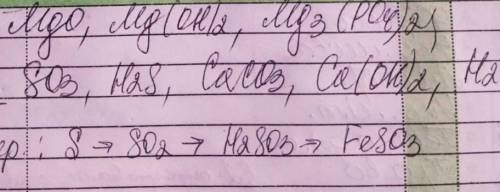 MgO, Mg(OH)2, Mg3(PO4)2,
SO3, H2S, CaCO3, Ca(OH)2, H2
ер: S → SO2 → H2SO3 → FeSO3